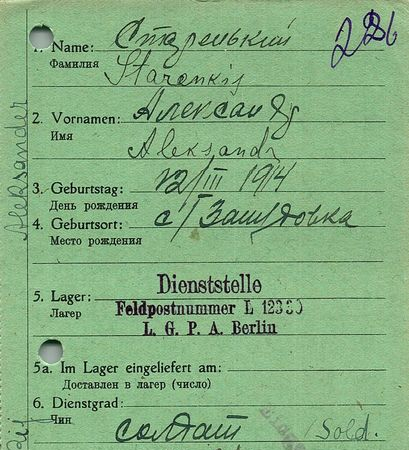 226
1. Name: Старенький
Фамилия
Starenkij
2. Vornamen: Александр
Имя
Aleksandr
3. Geburtstag: 12/III 1914
День рождения
4. Geburtsort: с/
Место рождения
Dienststelle
5. Lager: Feldpostnummer L 12330
Лагер
L. G. P. A. Berlin
5a. Im Lager eingeliefert am:
Доставлен в лагер (число)
6. Dienstgrad:
Чин
солдат Sold.
Aleksander